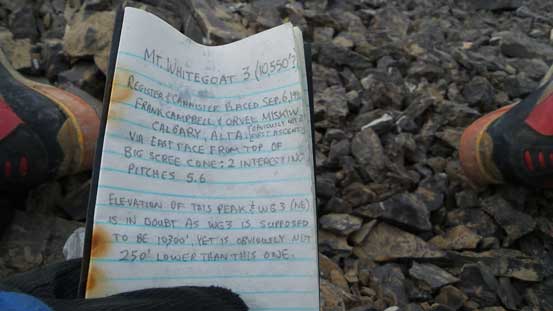 MT. WHITEGOAT 3 (10,550'?)
REGISTER & CANNISTER PLACED SEP. 6,
FRANK CAMPBELL & ORVEL MISKIW
CALGARY, ALTA. (OBVIOUSLY NOT
VIA EAST FACE FROM TOP OF ASCENT)
BIG SCREE CONE: 2 INTERESTING
PITCHES 5.6
ELEVATION OF THIS PEAK & WG3 (NE)
IS IN DOUBT AS WG3 IS SUPPOSED
TO BE 10300', YET IS OBVIOUSLY NOT
250' LOWER THAN THIS ONE.